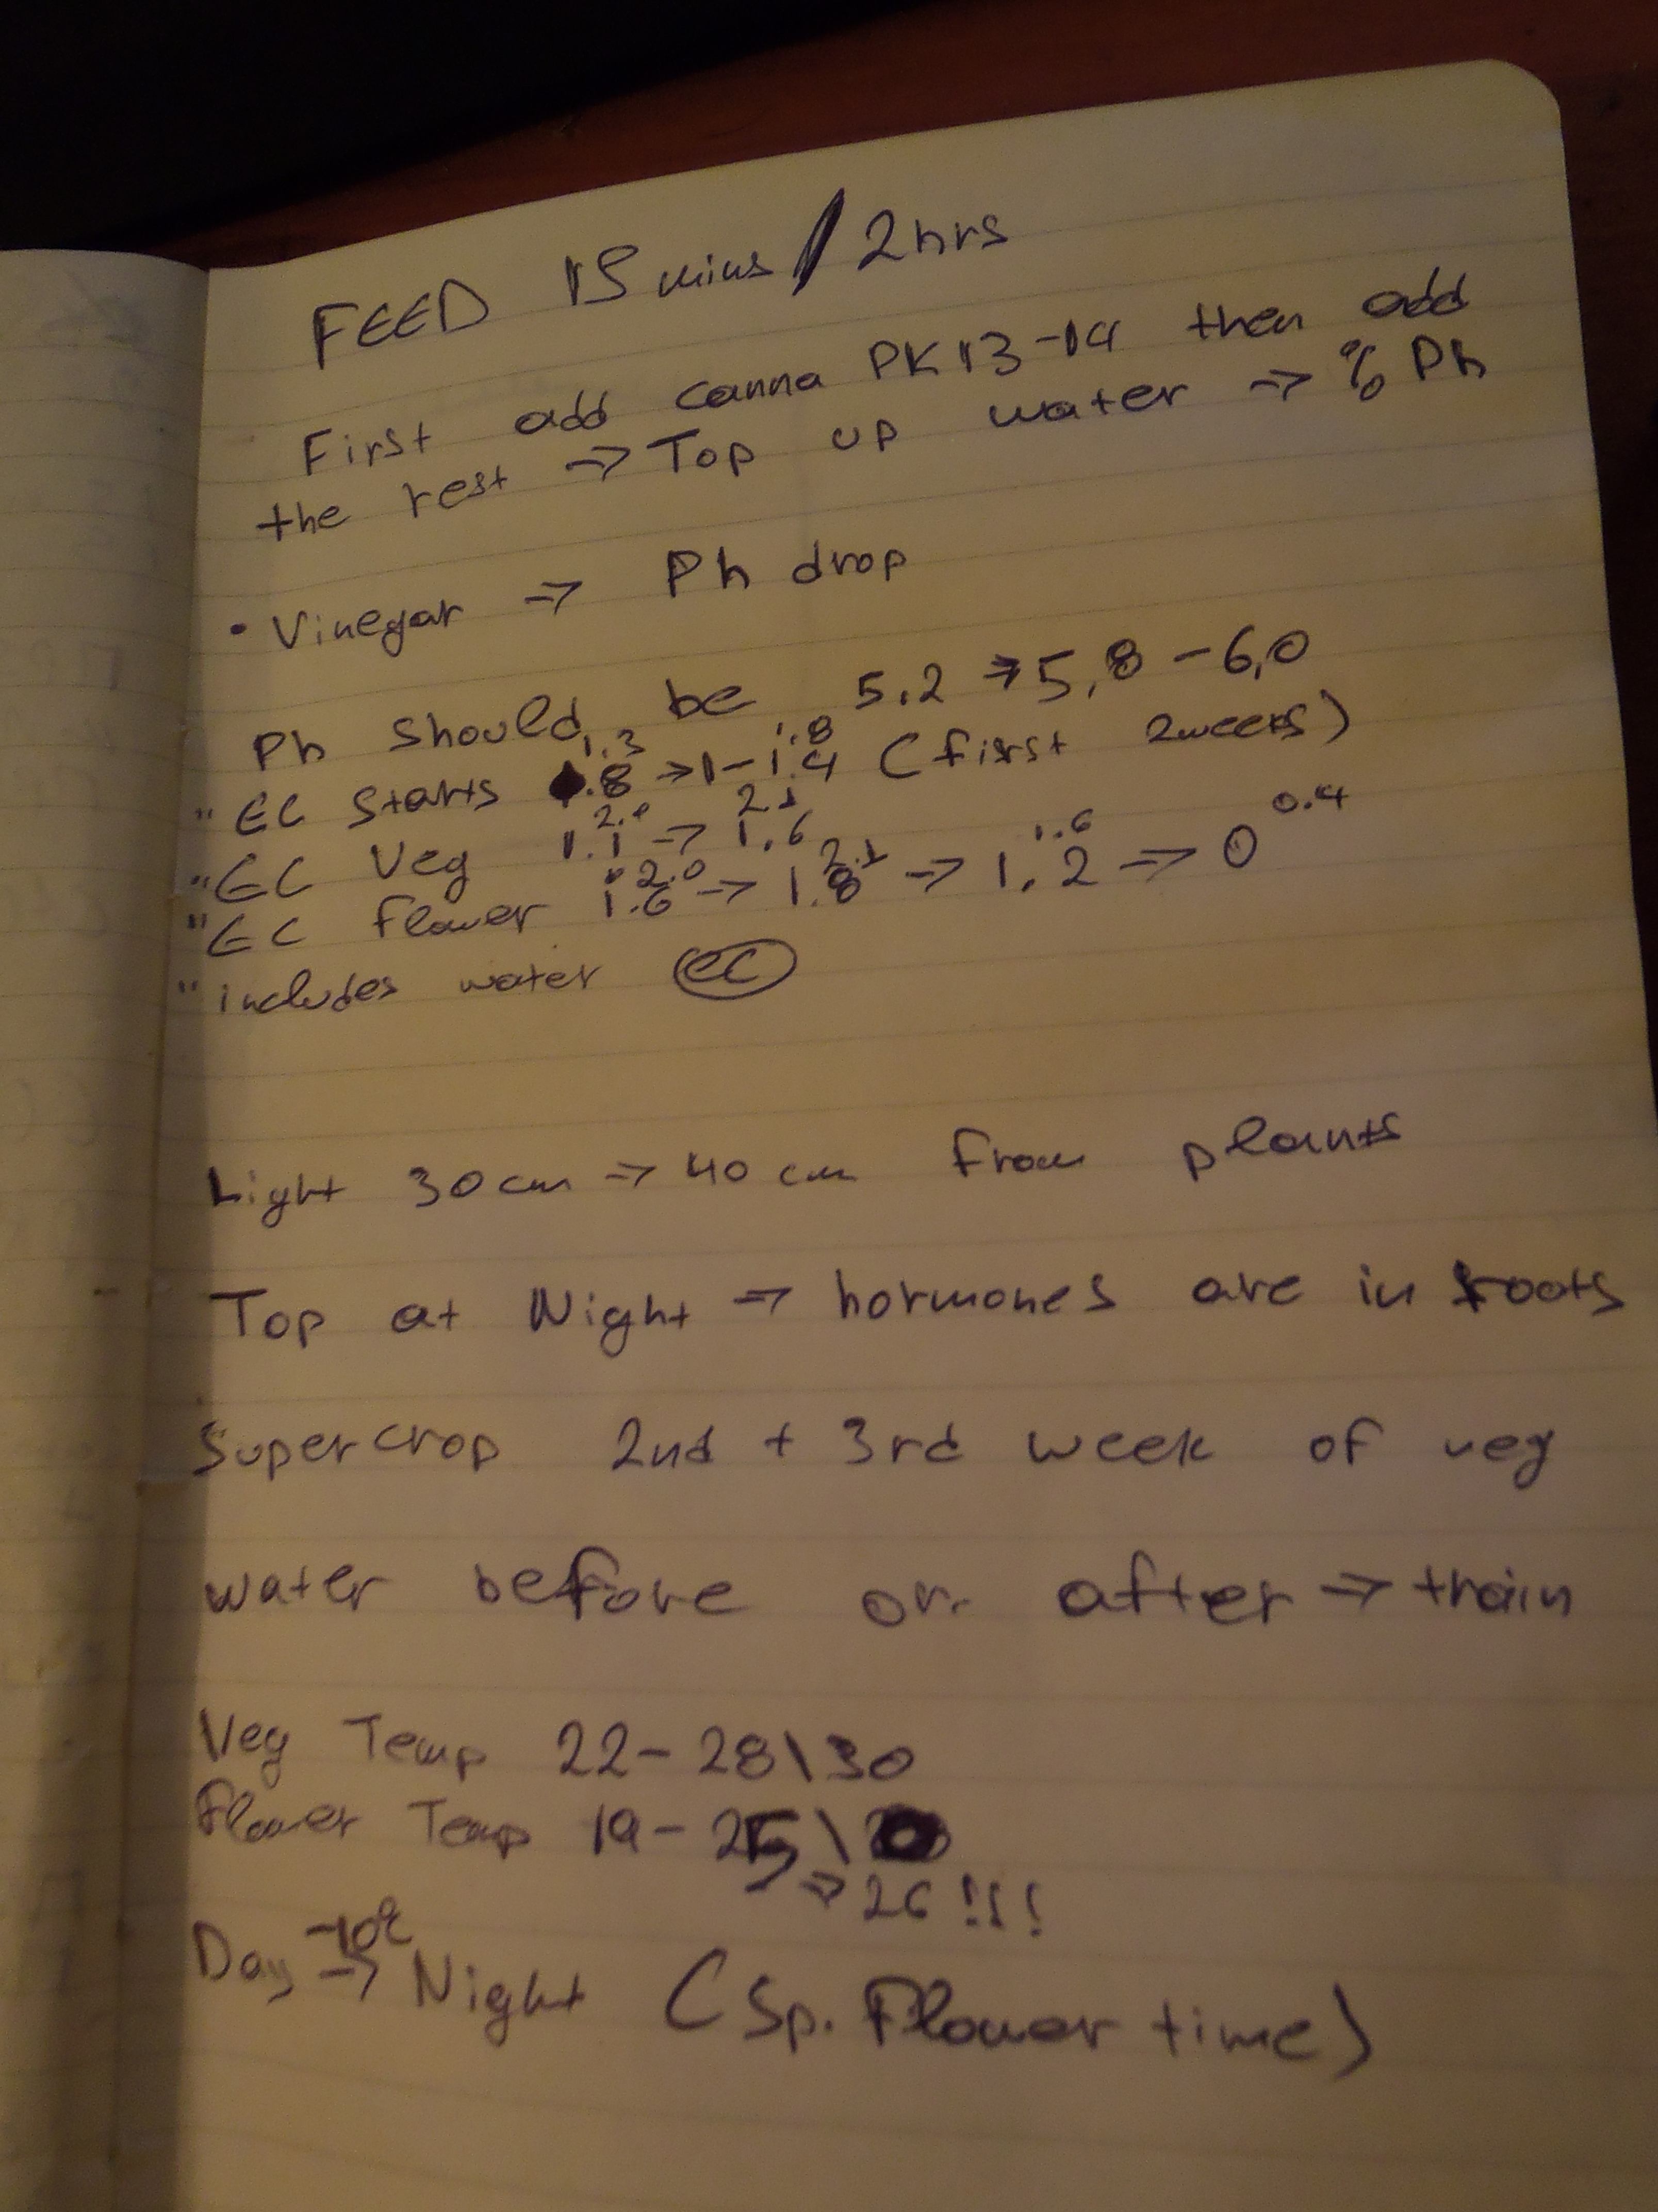 FEED 15 mins / 2hrs
First add canna PK 13-14 then add
the rest => Top up water => % Ph
• Vinegar => Ph drop
Ph should be 5.2 => 5,8 - 6,0
1.3 1.8
" EC Starts .8 -> 1 - 1.4 (first 2weeks)
2.0 2.1
" EC Veg 1.1 -> 1.6
2.0 2.1 1.6 0.4
" EC flower 1.6 -> 1.8 -> 1.2 => 0
" includes water ec
Light 30 cm => 40 cm from plants
Top at Night => hormones are in roots
Supercrop 2nd + 3rd week of veg
water before or after => train
Veg Temp 22 - 28\30
Flower Temp 19 - 25\
=> 26 !!!
-10°C
Day -> Night (Sp. Flower time)